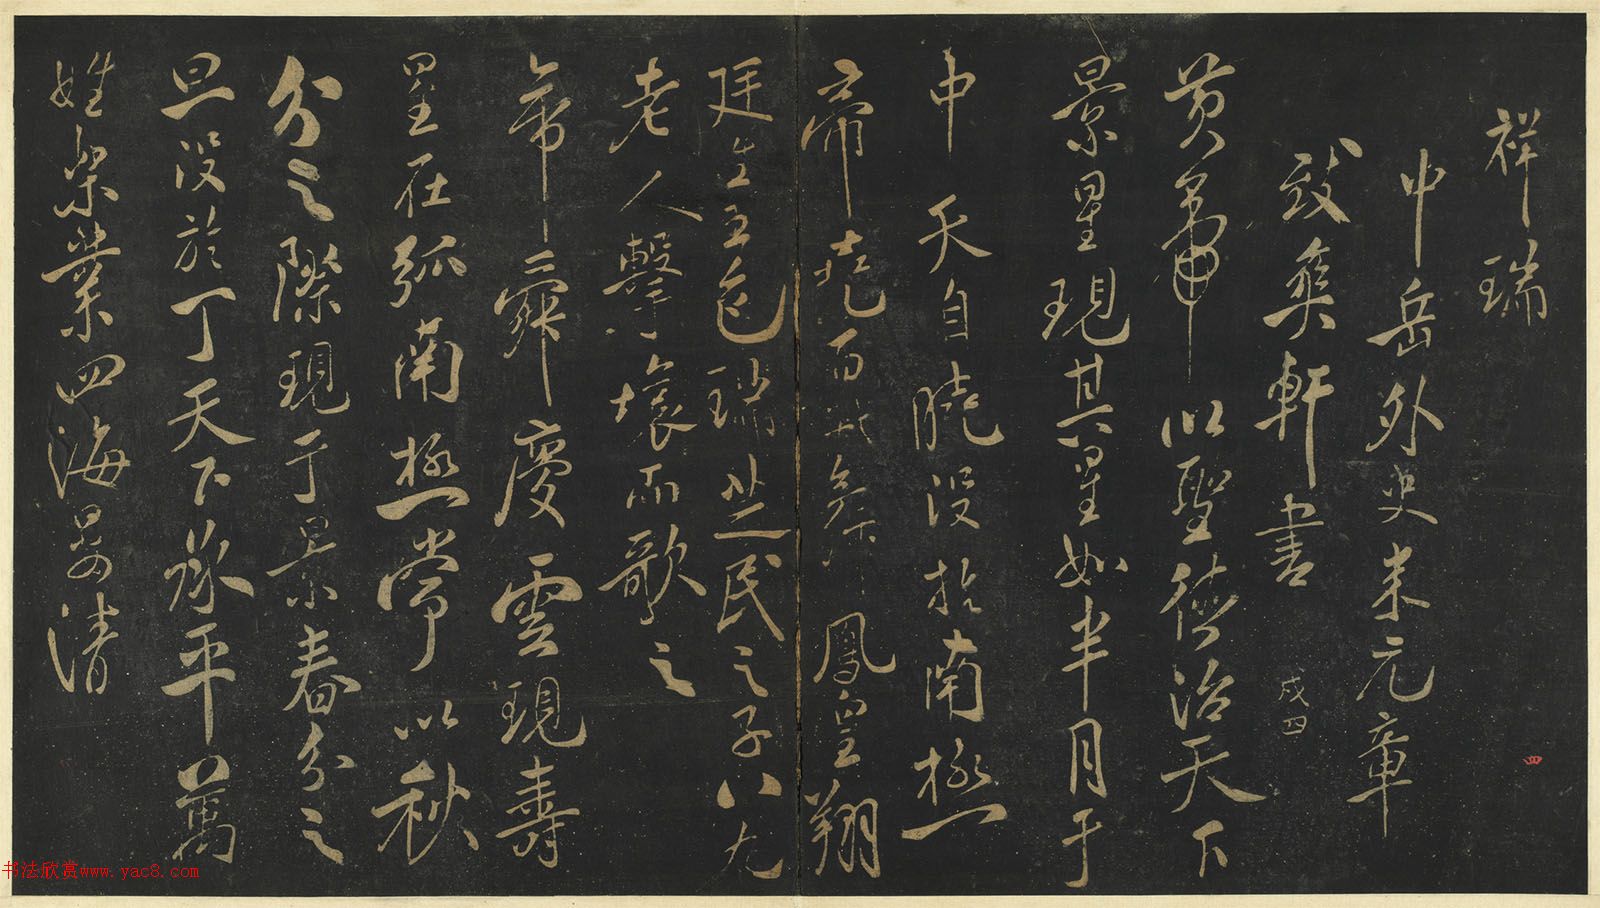 祥瑞
中岳外史米元章
致爽軒書
戍四
黄帝以聖德治天下
景星現其星如半月于
申天自曉没於南極
帝堯百獸舞鳳皇翔
廷生五色瑞芝民之子八九
老人擊壤而歌之
帝舜慶雲現壽
星在弧南極常以秋
分之際現于景春分之
旦没於丁天下承平萬
姓樂業四海晏清
四
书法欣赏www.yac8.com